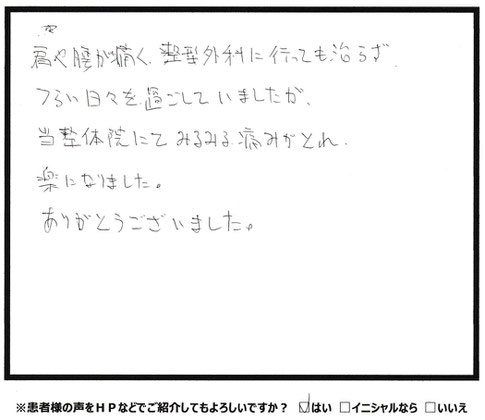 肩や腰が痛く、整型外科に行っても治らず、
つらい日々を過ごしていましたが、
当整体院にてみるみる痛みがとれ、
楽になりました。
ありがとうございました。
※患者様の声をHPなどでご紹介してもよろしいですか? ☑はい □イニシャルなら □いいえ